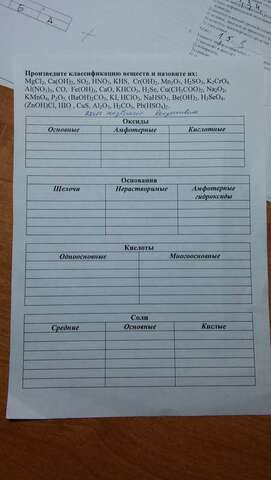 Б
А
Произведите классификацию веществ и назовите их:
MgCl₂, Ca(OH)₂, SO₂, HNO₃, KHS, Cr(OH)₂, Mn₂O₇, H₂SO₄, K₂CrO₄
Al(NO₃)₃, CO, Fe(OH)₃, CaO, KHCO₃, H₂Se, Cu(CH₃COO)₂, Na₂O₂
KMnO₄, P₂O₅, (BaOH)₂CO₃, KI, HClO₃, NaHSO₃, Be(OH)₂, H₂SeO₄,
(ZnOH)Cl, HIO, CuS, Al₂O₃, H₂CO₃, Pb(HSO₄)₂
Оксиды
Основные Амфотерные Кислотные
Основания
Щелочи Нерастворимые Амфотерные гидроксиды
Кислоты
Одноосновные Многоосновные
Соли
Средние Основные Кислые